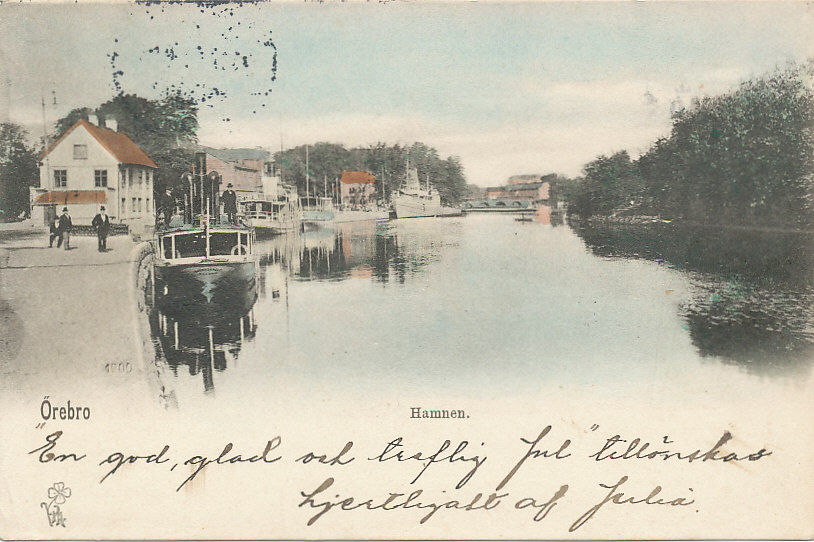 1900
Örebro
Hamnen.
"En god, glad och treflig Jul" tillönskas
hjertligast af Julia.